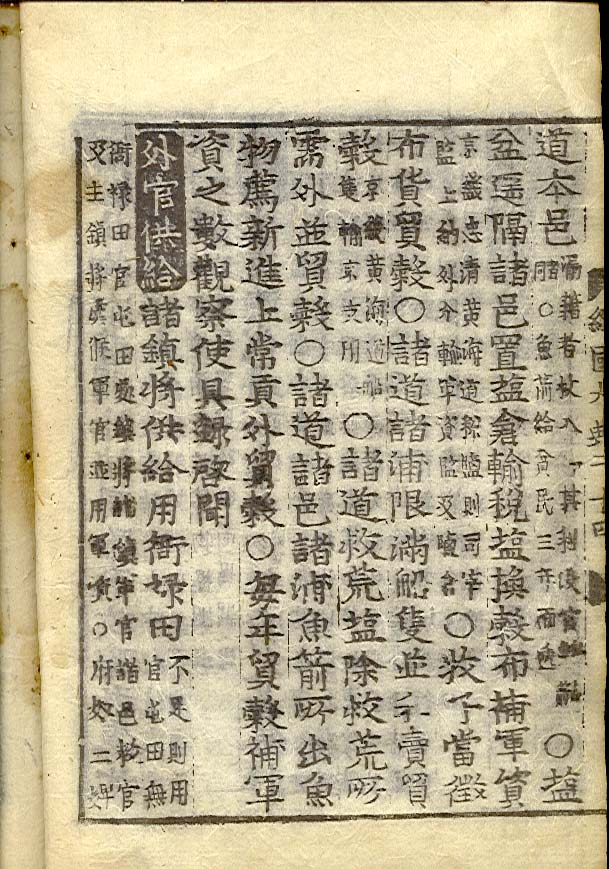 道本邑
漏籍者杖八十其利沒官
○魚箭給貧民三年而遞
○塩
盆遥隔諸邑置塩倉輸稅塩換穀布補軍資
京畿忠清黃海道稅塩則司宰
監上納外分輸軍資監及塩倉
○牧子當徵
布貨貿穀○諸道諸浦限滿船隻並許賣貿
穀
京畿黃海道船
隻輸京支用
○諸道救荒塩除救荒所
需外並貿穀○諸道諸邑諸浦魚箭所出魚
物薦新進上常貢外貿穀○每年貿穀補軍
資之數觀察使具錄啓聞
外官供給
諸鎮將供給用衙祿田
不足則用
官屯田無
衙祿田官屯田處鎮將諸鎮軍官諸邑教官
及主鎮將虞候軍官並用軍資○府使二婢